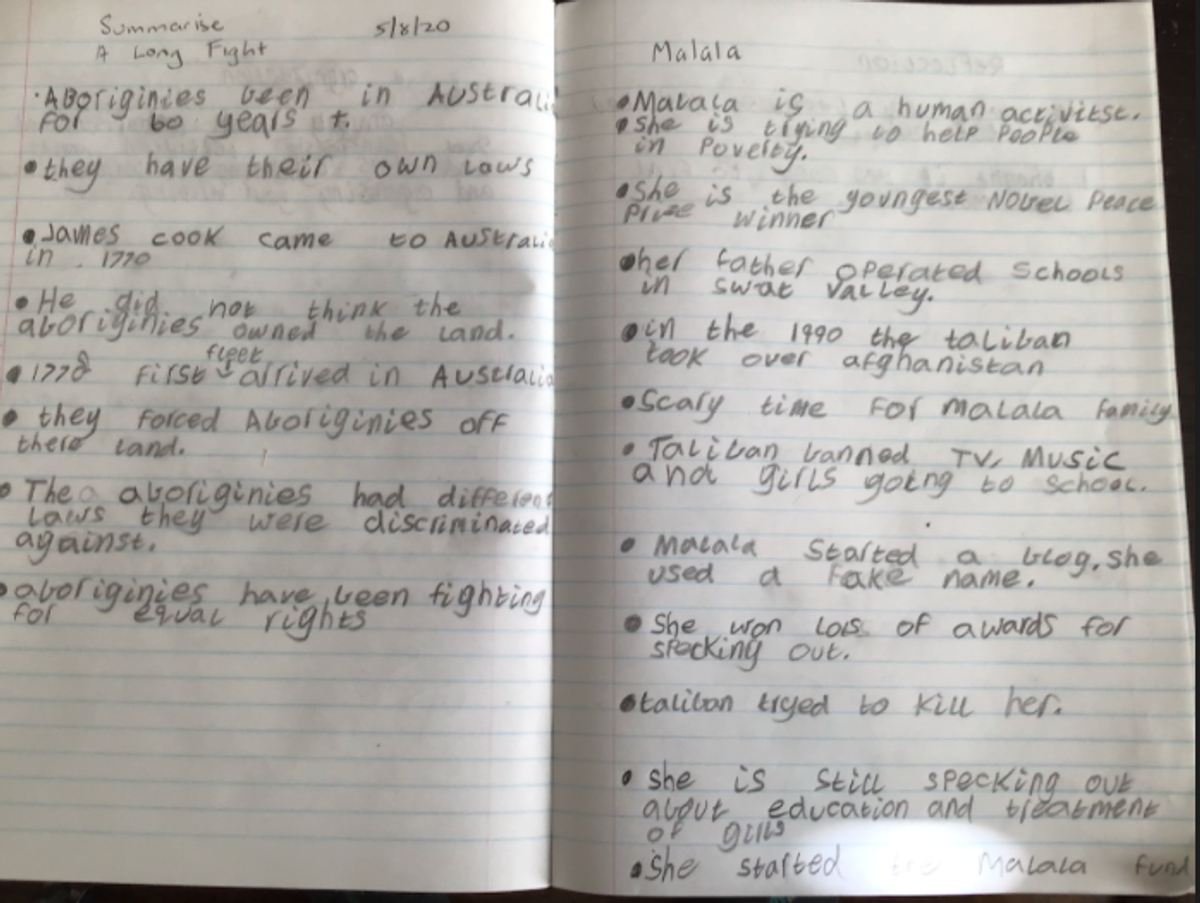 Summarise 5/8/20
A Long Fight
• Aboriginies been in Australi
for 60 years t.
• they have their own laws
• James cook came to Australi
in . 1770
• He did not think the
aboriginies owned the land.
fleet
• 1778 first arrived in Australia
• they forced Aboriginies off
there land.
• The aboriginies had different
laws they were discriminated
against.
• aboriginies have been fighting
for equal rights
Malala
• Malala is a human activitst.
• she is trying to help People
in Poverty.
• She is the youngest Nobel Peace
Prize winner
• her father operated schools
in swat valley.
• in the 1990 the taliban
took over afghanistan
• Scary time For Malala family
• Taliban banned TV, Music
and girls going to school.
• Malala Started a blog. she
used a Fake name.
• She won lots of awards for
specking out.
• taliban tryed to kill her.
• she is still specking out
about education and treatment
of girls
• She started the Malala fund